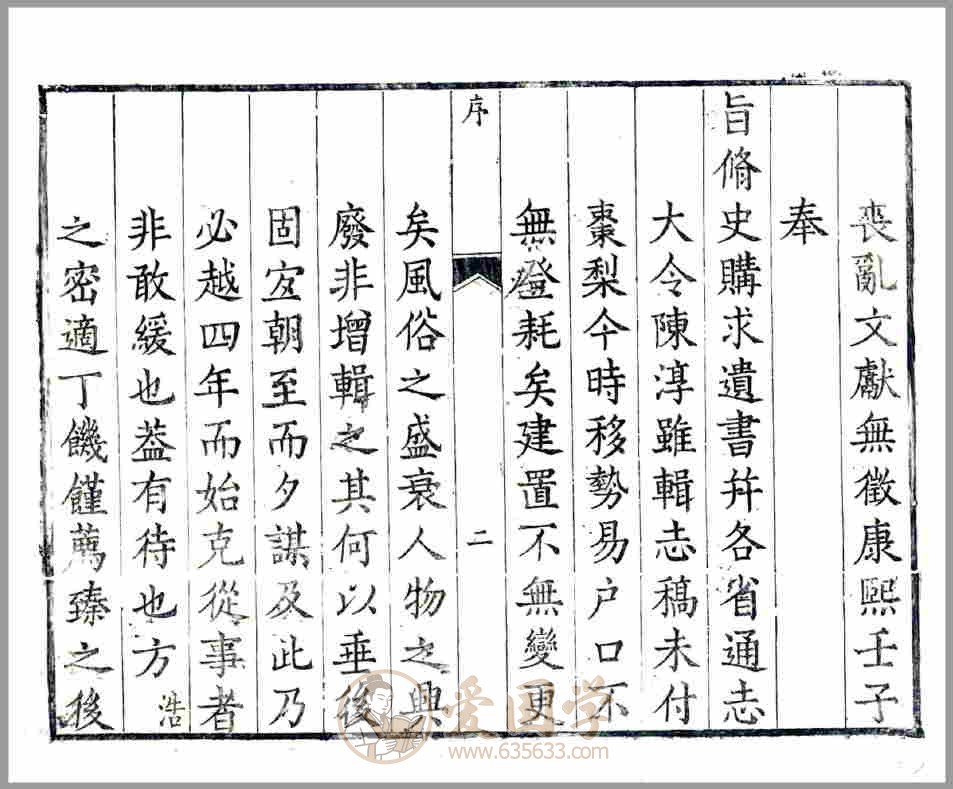 喪亂文獻無徵康熙壬子
奉
旨脩史購求遺書幷各省通志
大令陳淳雖輯志稿未付
棗梨今時移勢易户口不
無登耗矣建置不無變更
序
二
矣風俗之盛衰人物之興
廢非增輯之其何以垂後
固宐朝至而夕謀及此乃
必越四年而始克從事者
非敢緩也葢有待也方浩
之密適丁饑饉薦臻之後
爱国学
www.635633.com